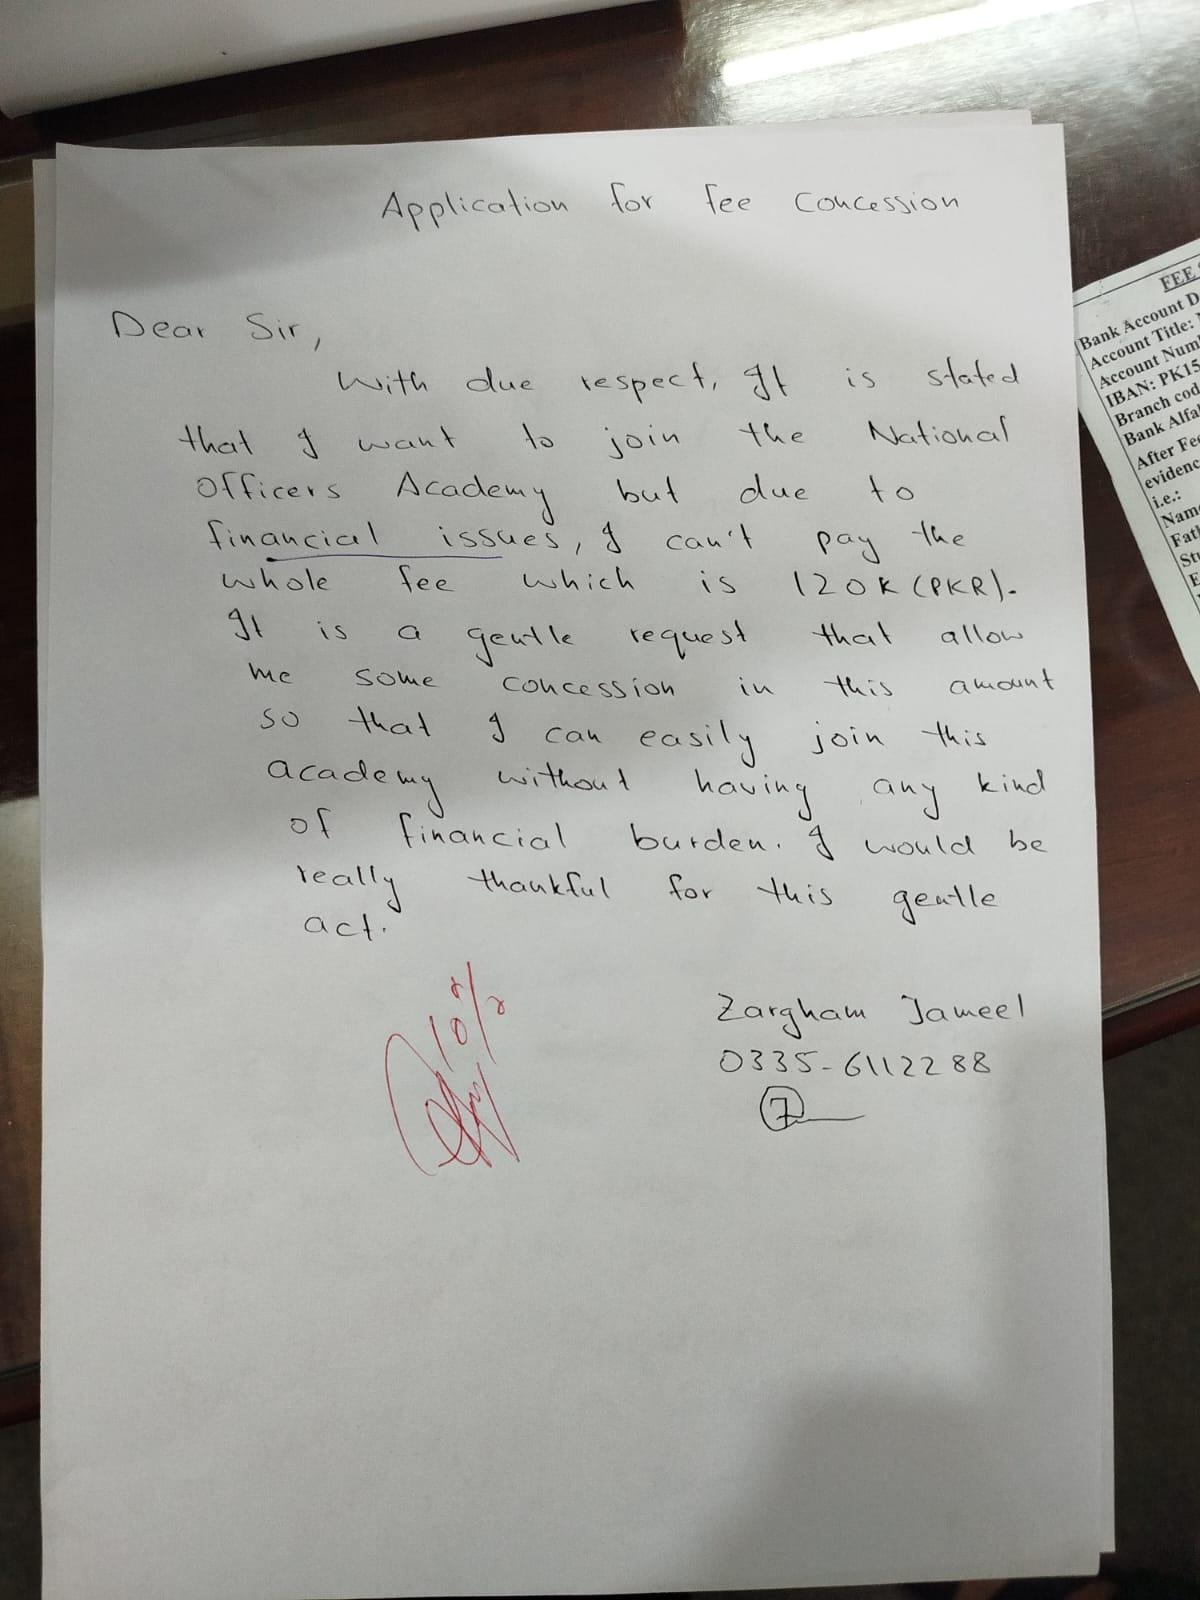 Application for fee concession
Dear Sir,
With due respect, It is stated
that I want to join the National
Officers Academy but due to
financial issues, I can't pay the
whole fee which is 120K (PKR).
It is a gentle request that allow
me some concession in this amount
so that I can easily join this
academy without having any kind
of financial burden. I would be
really thankful for this gentle
act.
10%
Zargham Jameel
0335-6112288
FEE
Bank Account D
Account Title:
Account Num
IBAN: PK15
Branch cod
Bank Alfa
After Fee
evidenc
i.e.:
Name
Fath